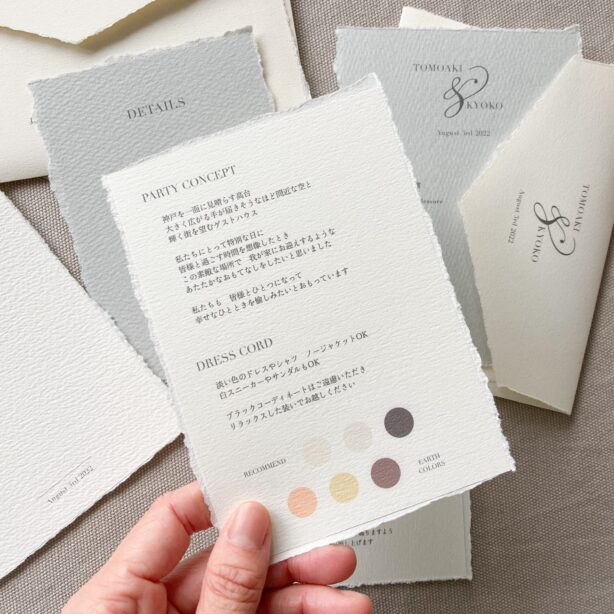 DETAILS
TOMOAKI
&
KYOKO
August 3rd 2022
TOMOAKI
&
KYOKO
August 3rd 2022
PARTY CONCEPT
神戸を一面に見晴らす高台
大きく広がる手が届きそうなほど間近な空と
輝く街を望むゲストハウス
私たちにとって特別な日に
皆様と過ごす時間を想像したとき
この素敵な場所で 我が家にお迎えするような
あたたかなおもてなしをしたいと思いました
私たちも 皆様とひとつになって
幸せなひとときを愉しみたいとおもっています
DRESS CORD
淡い色のドレスやシャツ ノージャケットOK
白スニーカーやサンダルもOK
ブラックコーディネートはご遠慮いただき
リラックスした装いでお越しください
RECOMMEND
EARTH
COLORS
August 3rd 2022